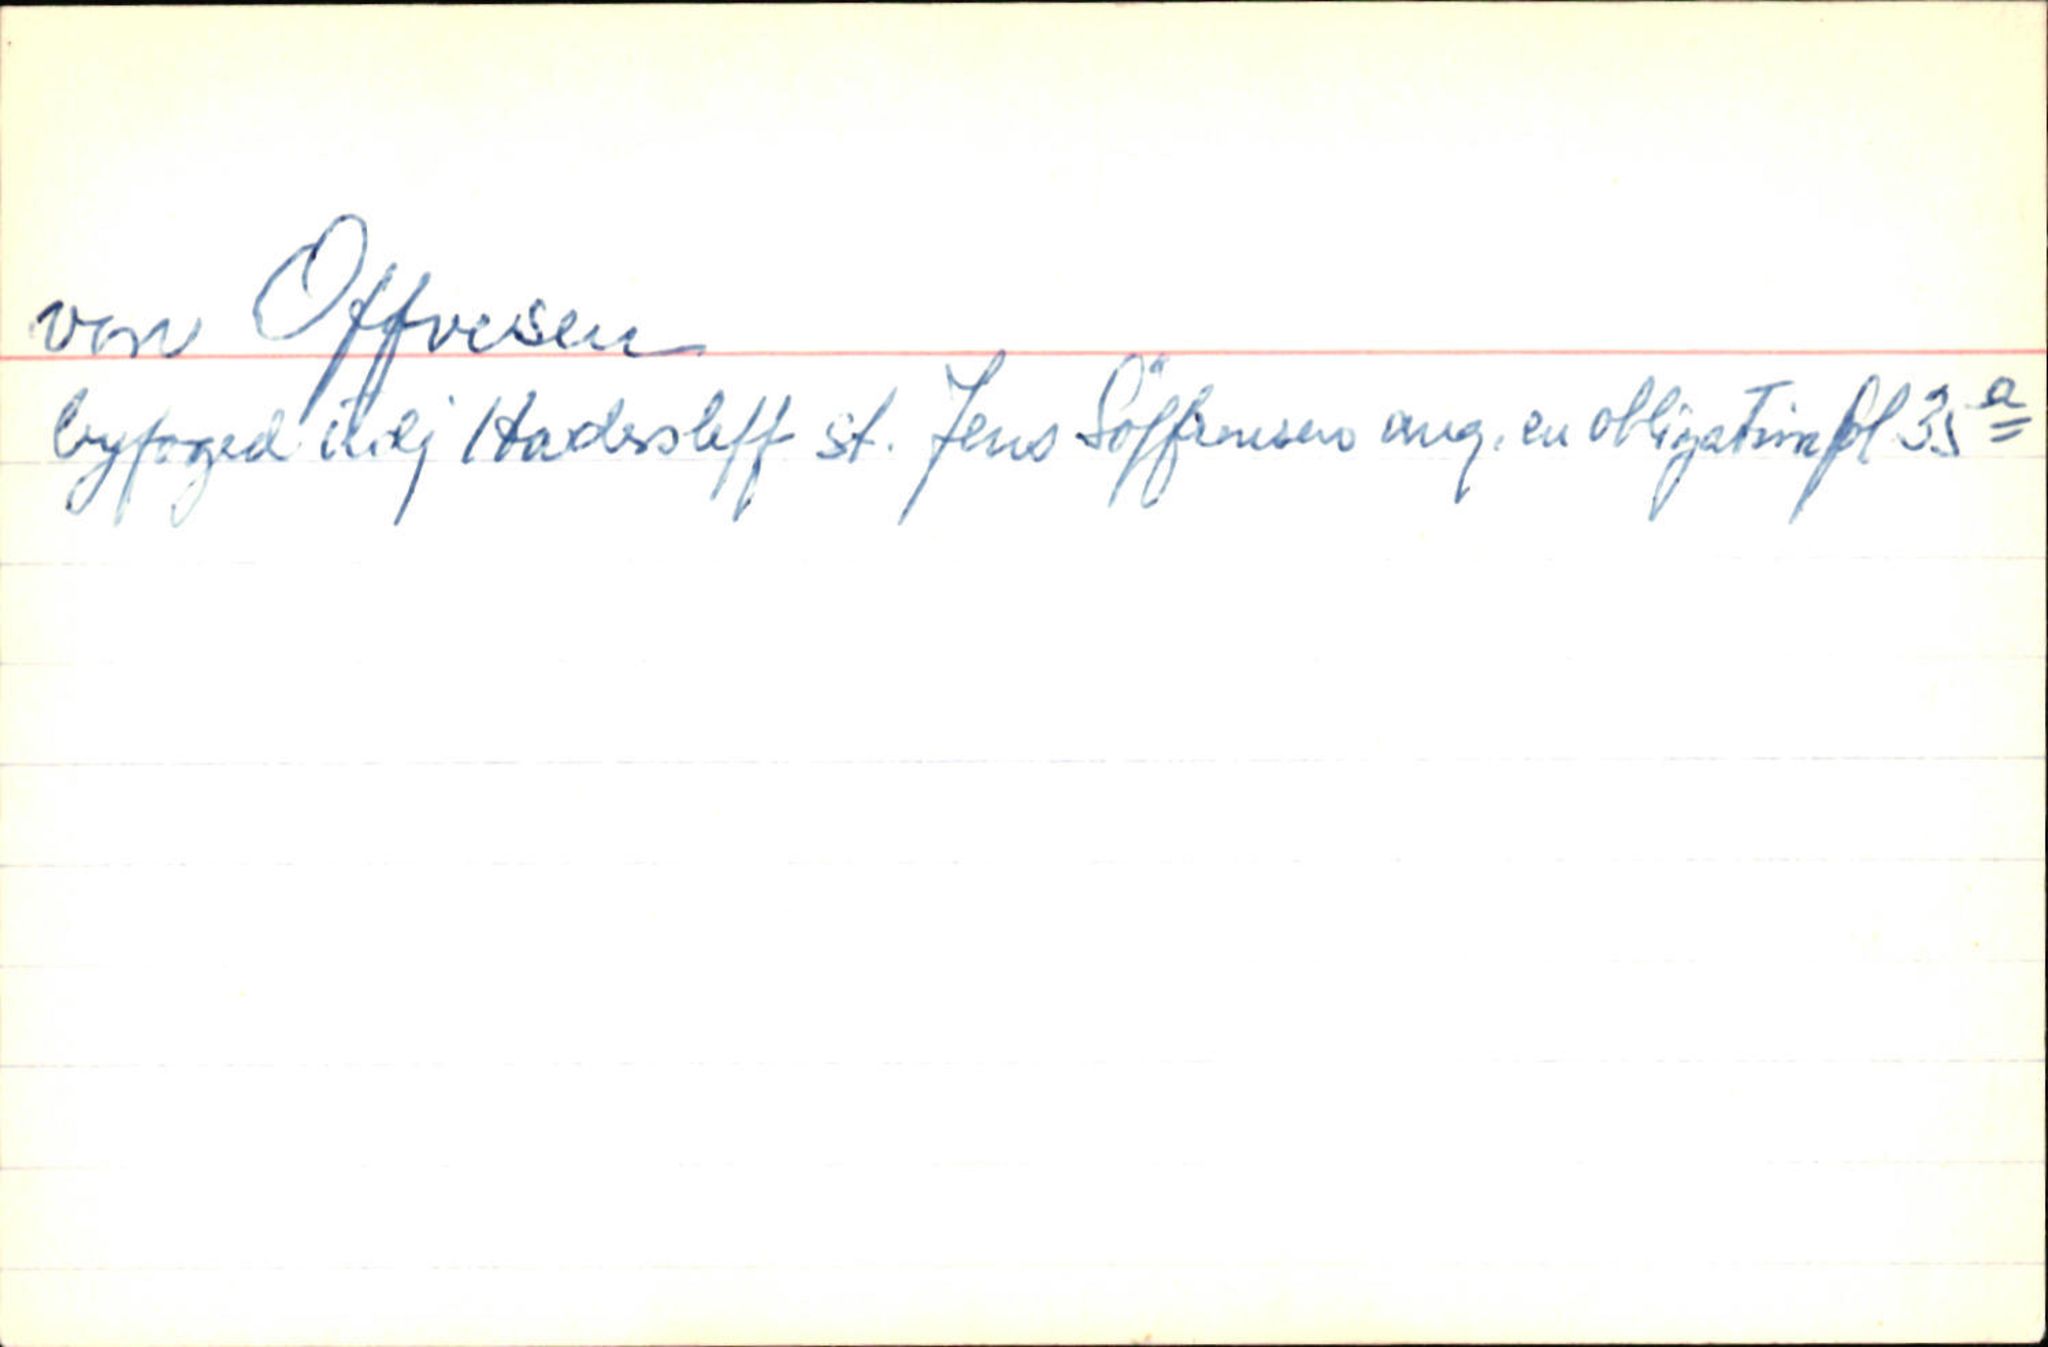 von Offvesen
byfoged udj Hadersleff st. Jens Söffrensen ang. en obligation fol 35 a